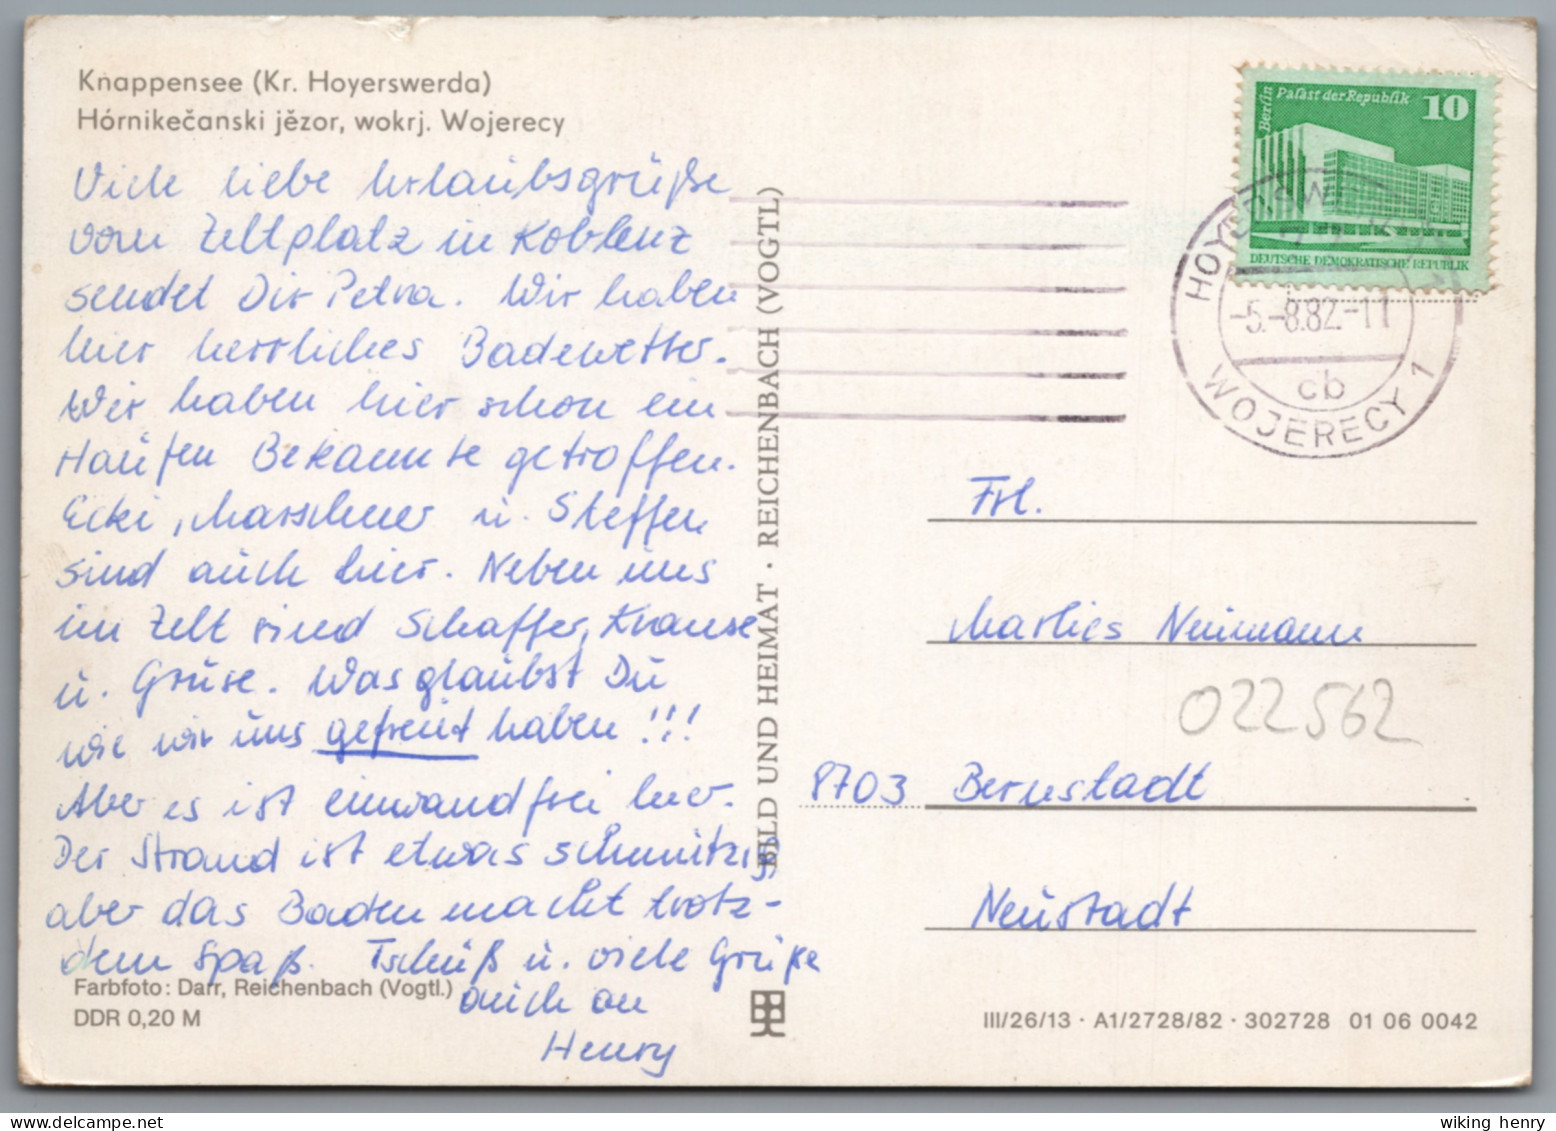 Knappensee (Kr. Hoyerswerda)
Hórnikečanski jězor, wokrj. Wojerecy
Viele liebe Urlaubsgrüße
vom Zeltplatz in Koblenz
sendet Dir Petra. Wir haben
hier herrliches Badewetter.
Wir haben hier schon ein
Haufen Bekannte getroffen.
Ecki, Marschner u. Steffen
sind auch hier. Neben uns
im Zelt sind Schaffer, Krause
u. Gruse. Was glaubst Du
wie wir uns gefreut haben!!!
Aber es ist einwandfrei hier.
Der Strand ist etwas schmutzig
aber das Baden macht trotz-
dem Spaß. Tschüß u. viele Grüße
auch an
Henry
Farbfoto: Darr, Reichenbach (Vogtl.)
DDR 0,20 M
BILD UND HEIMAT · REICHENBACH (VOGTL)
Berlin
Palast der Republik
10
DEUTSCHE DEMOKRATISCHE REPUBLIK
HOYERSW
-5.-8.82.-11
cb
WOJERECY 1
Frl.
Marlies Neumann
022562
8703 Bernstadt
Neustadt
III/26/13 · A1/2728/82 · 302728 01 06 0042
wiking henry